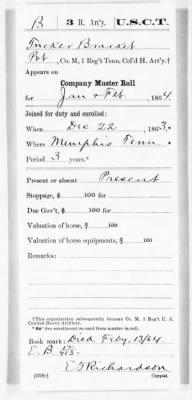 B | 3 H. Art'y. | U.S.C.T.
Tucker Bracket
Pvt, Co. M, 1 Reg't Tenn. Col'd H. Art'y.†
Appears on
Company Muster Roll
for Jan & Feb, 1864.
Joined for duty and enrolled:
When Dec 22, 1863.*
Where Memphis Tenn *
Period 3 years.*
Present or absent Present
Stoppage, $ 100 for
Due Gov't, $ 100 for
Valuation of horse, $ 100
Valuation of horse equipments, $ 100
Remarks:
†This organization subsequently became Co. M, 3 Reg't U. S.
Colored Heavy Artillery.
*See enrollment on card from muster-in roll.
Book mark: Died Feby. 13/64
E. B.
E T Richardson
(358c) Copyist.